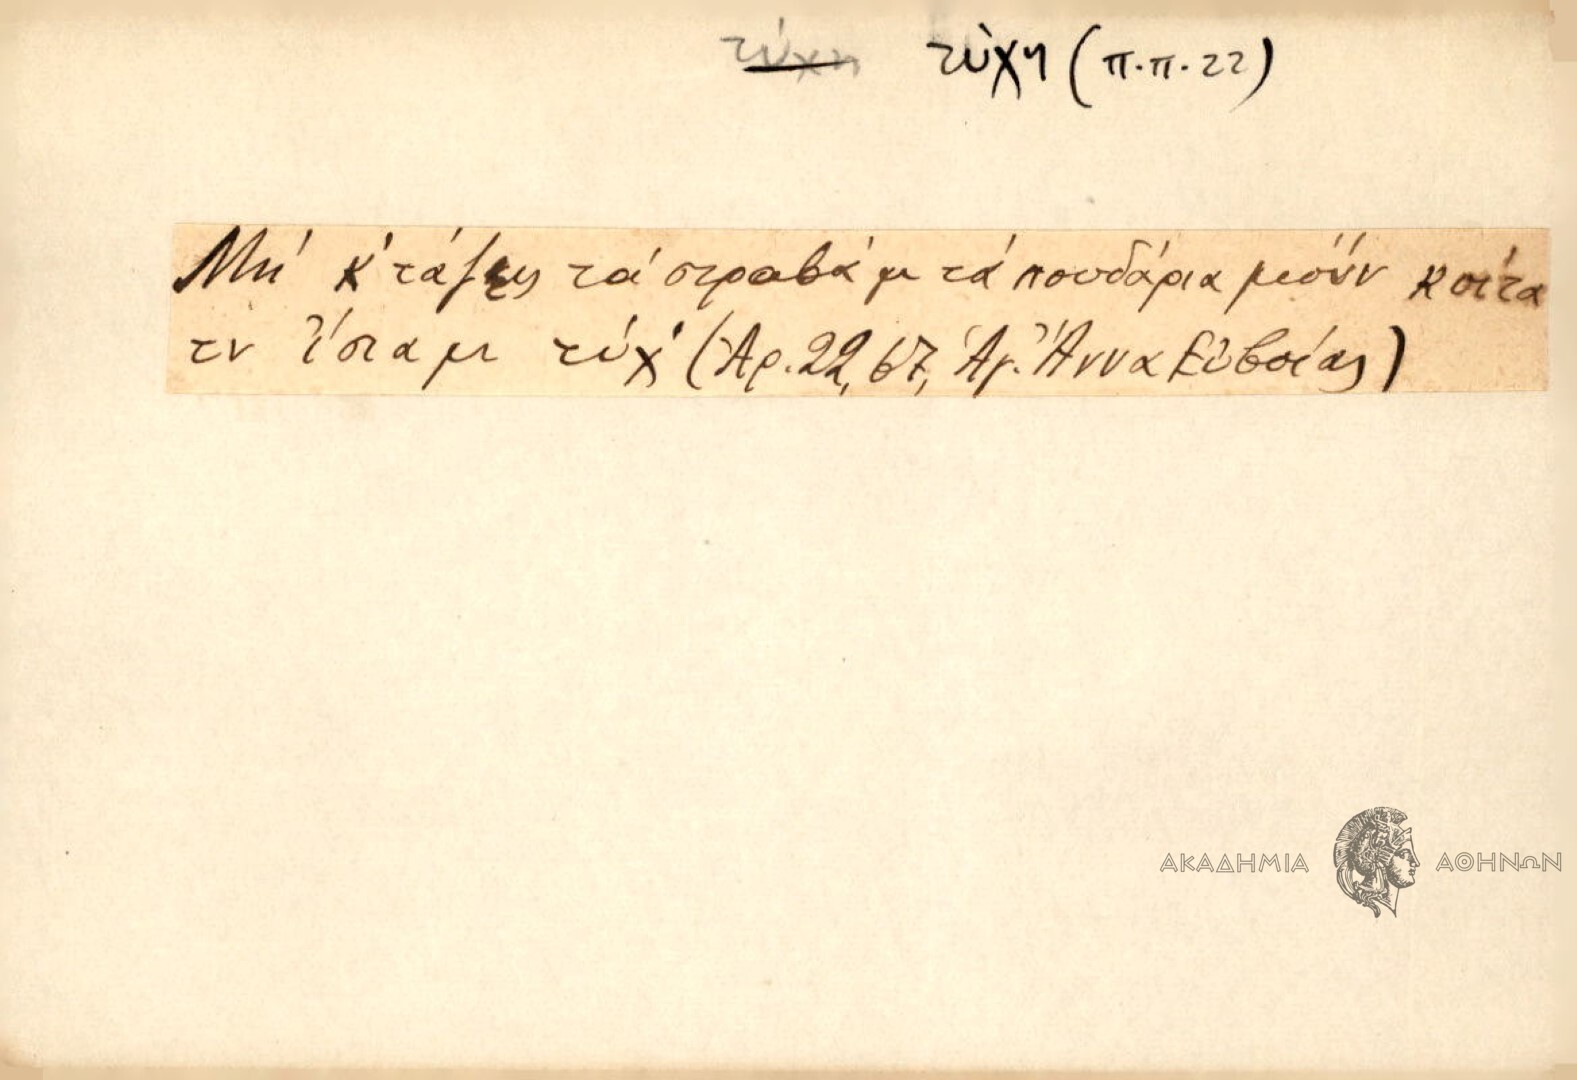 τύχη τύχη (π.π. 22)
Μή κ'τάζεις τά στραβά μ τά πουδάρια μούν κοίτα
τν ἴσια μ τύχ' (Ἀρ. 22, 67, Ἁγ. Ἄννα Εὐβοίας)
ΑΚΑΔΗΜΙΑ ΑΘΗΝΩΝ